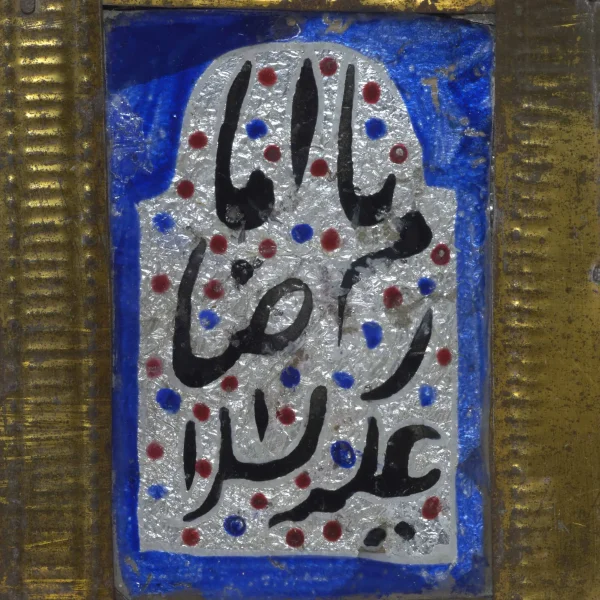 یا اما
م رضا
علیه السلا